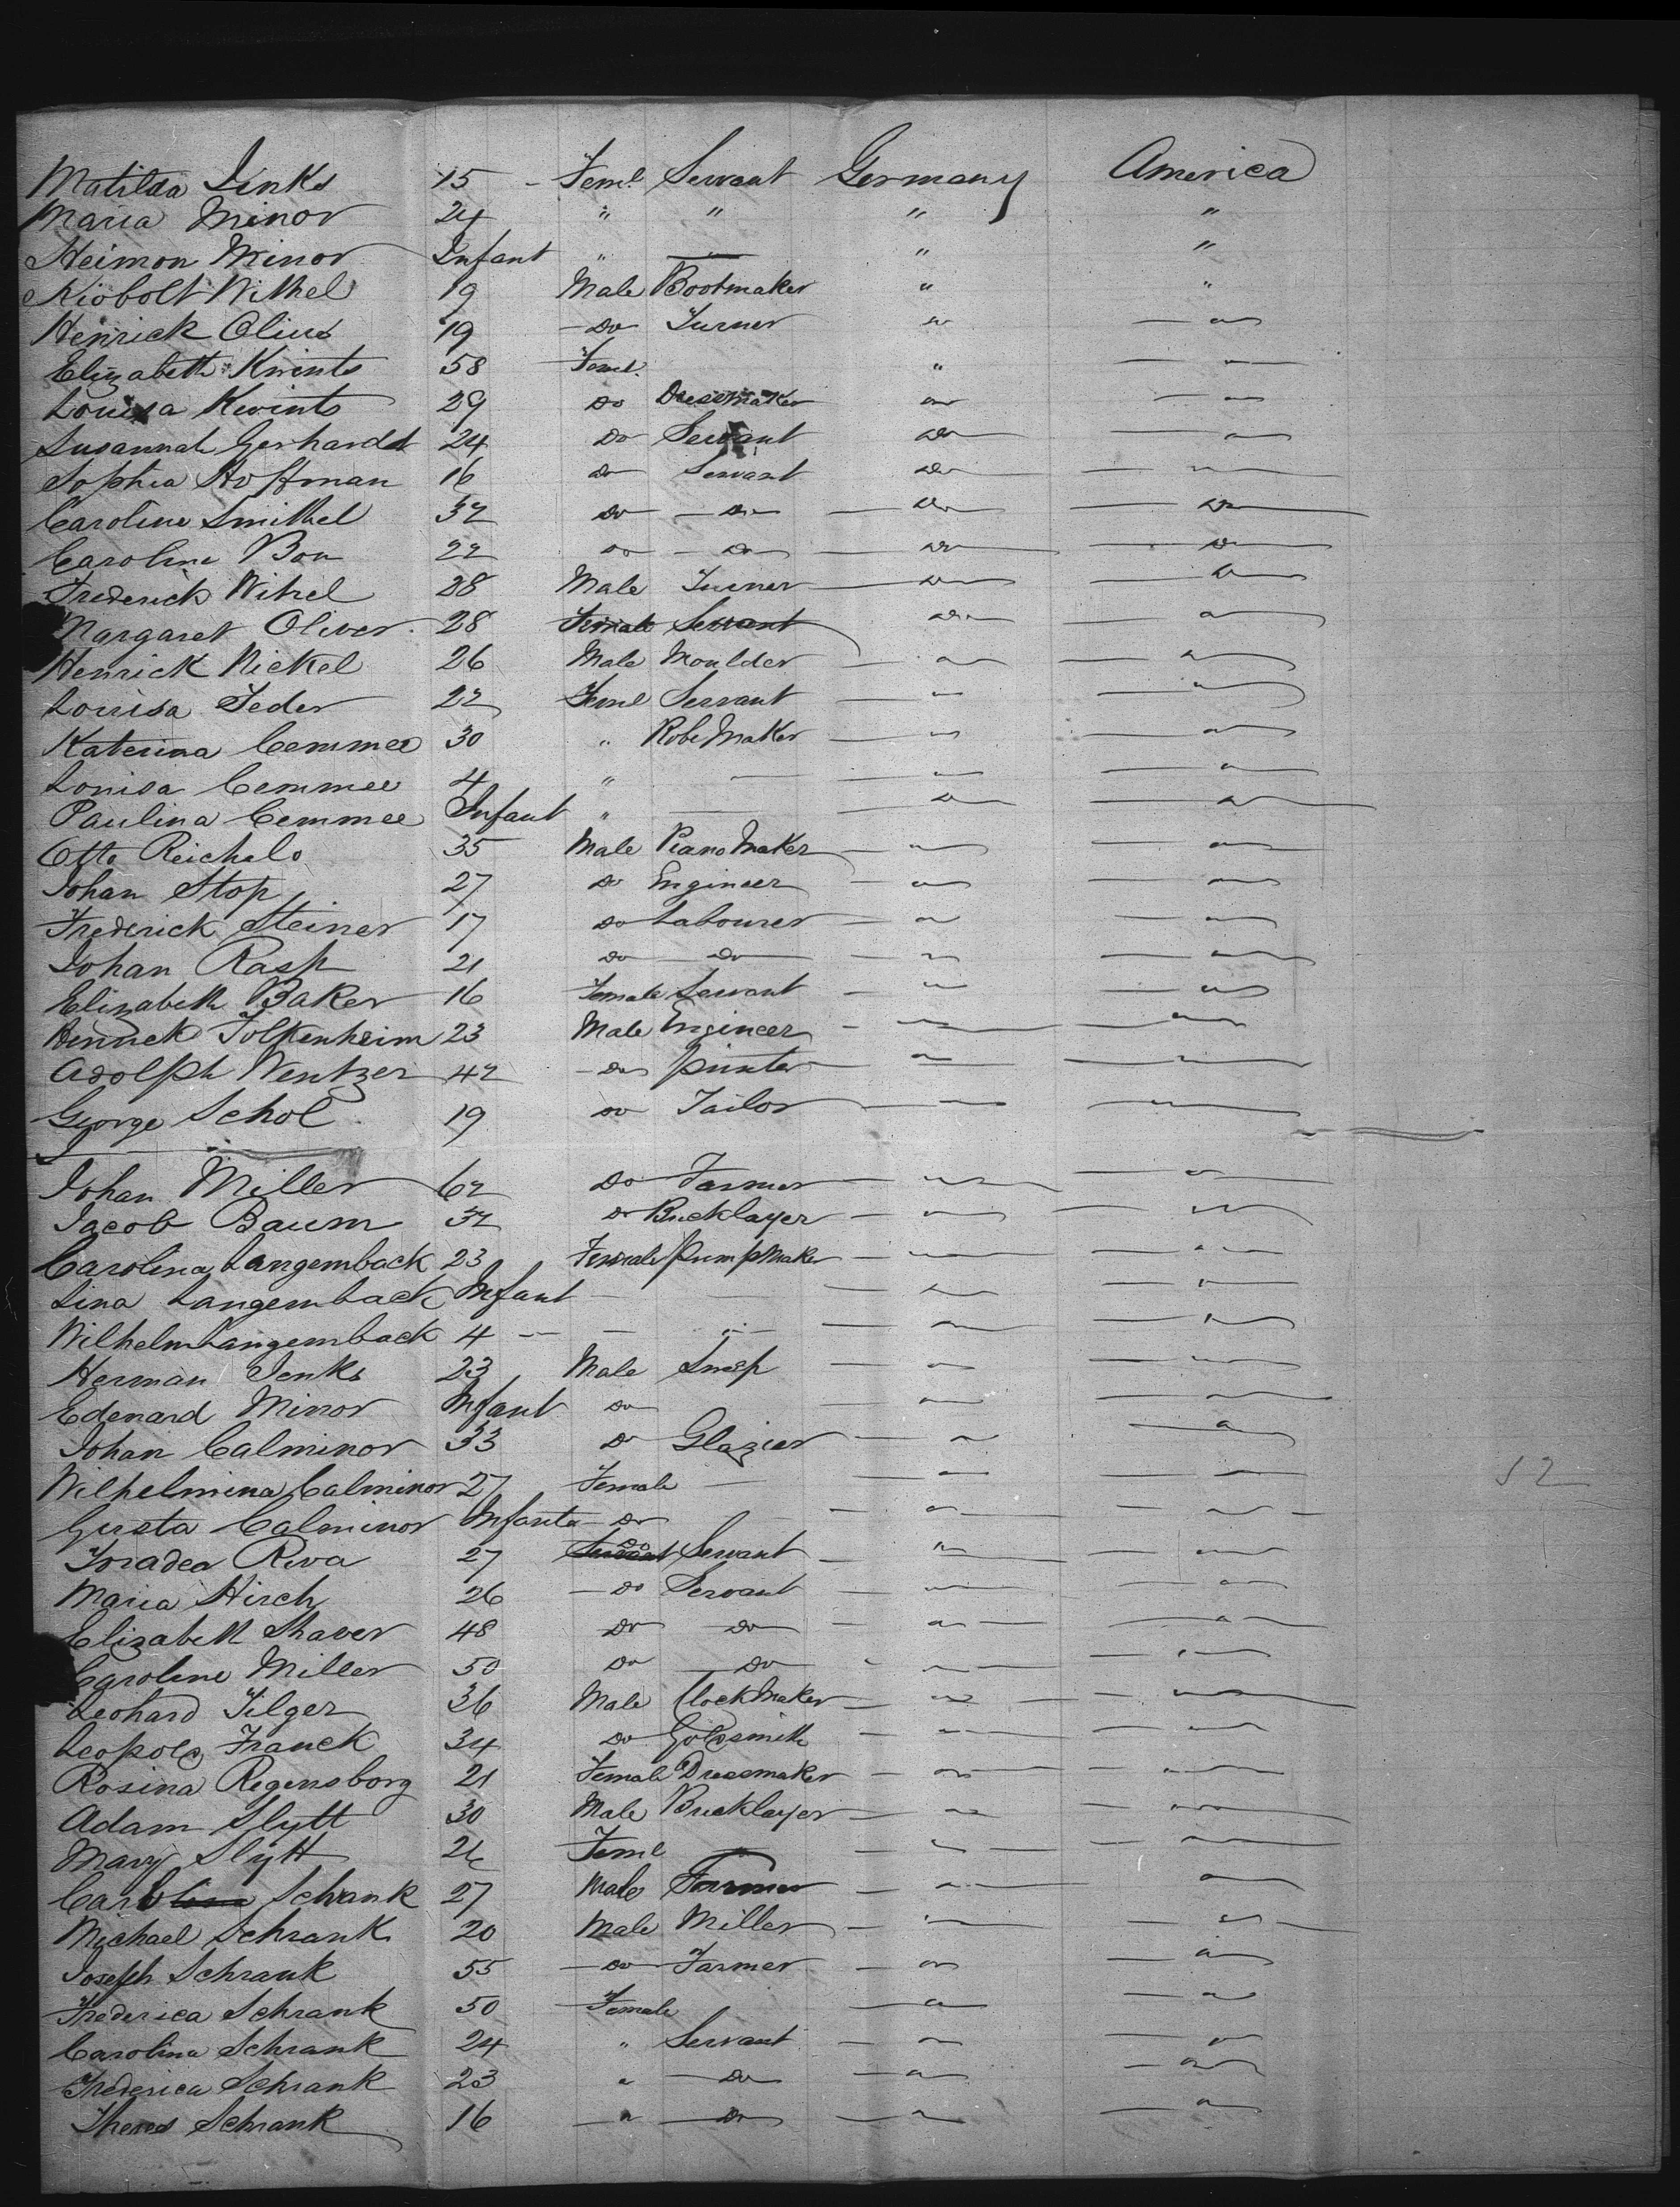 Matilda Jenks 15 Feml. Servant Germany America
Maria Minor 24 " " " "
Heimon Minor Infant " — " "
Kiobolt Withel 19 Male Bootmaker " "
Henrick Olius 19 Do Turner Do Do
Elizabeth Kwints 58 Feml. " Do
Louisa Kwints 29 Do Dressmaker Do Do
Susannah Gerhardt 24 Do Servant Do Do
Sophia Hoffman 16 Do Servant Do Do
Caroline Smithel 32 Do Do Do Do
Caroline Bon 22 Do Do Do Do
Frederick Witzel 28 Male Turner Do Do
Margaret Oliver 28 Female Servant Do Do
Henrick Nickel 26 Male Moulder Do Do
Louisa Feder 22 Feml Servant Do Do
Katerina Cemmee 30 " Robe Maker Do Do
Louisa Cemmee 4 " — Do Do
Paulina Cemmee Infant " — Do Do
Otto Reichelo 35 Male Piano Maker Do Do
Johan Stop 27 Do Engineer Do Do
Frederick Steiner 17 Do Labourer Do Do
Johan Rasp 21 Do Do Do Do
Elizabeth Baker 16 Female Servant Do Do
Henrick Folkenheim 23 Male Engineer Do Do
Adolph Wentzer 42 Do printer Do Do
George Schol 19 Do Tailor Do Do
Johan Miller 62 Do Farmer Do Do
Jacob Baum 32 Do Bricklayer Do Do
Carolina Langemback 23 Female Pump Maker Do Do
Lina Langemback Infant — — Do Do
Wilhelm Langemback 4 — — " Do Do
Herman Jenks 23 Male Do Do
Edenard Minor Infant Do Do Do
Johan Calminor 33 Do Glazier Do Do
Wilhelmina Calminor 27 Female — Do Do
Gusta Calminor Infant Do Do Do
Foradea Riva 27 Servant Do Servant Do Do
Maria Hirch 26 Do Servant Do Do
Elizabeth Shaver 48 Do Do Do Do
Caroline Miller 50 Do Do Do Do
Leohard Filger 36 Male Clock Maker Do Do
Leopold Franck 34 Do Goldsmith Do Do
Rosina Regensborg 21 Female Dressmaker Do Do
Adam Slytt 30 Male Bricklayer Do Do
Mary Slytt 26 Feml — Do Do
Carl Schrank 27 Male Farmer Do Do
Michael Schrank 20 Male Miller Do Do
Joseph Schrank 55 Do Farmer Do Do
Frederica Schrank 50 Female Do Do
Carolina Schrank 24 " Servant Do Do
Frederica Schrank 23 " Do Do Do
Theres Schrank 16 " Do Do Do
52